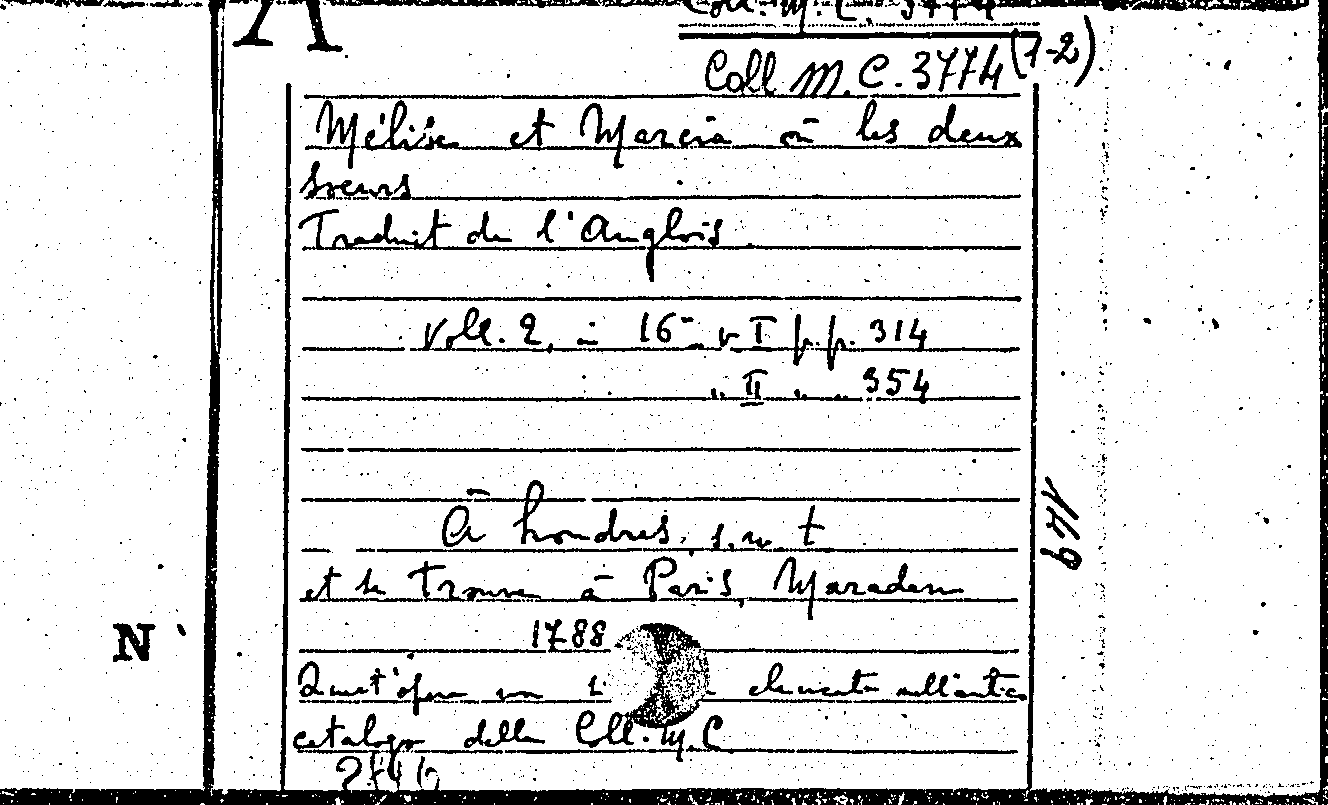 A
Coll. M.C. 3774
Coll M.C. 3774 (1-2)
Mélise et Marcia ou les deux
soeurs
Traduit de l'Anglois.
Voll. 2, in 16° v I p.p. 314
" II " " 354
à Londres, s.n.t
et se trouve à Paris, Maradan
1788
Quest'opera non elencata nell'antico
catalogo della Coll. M.C.
N